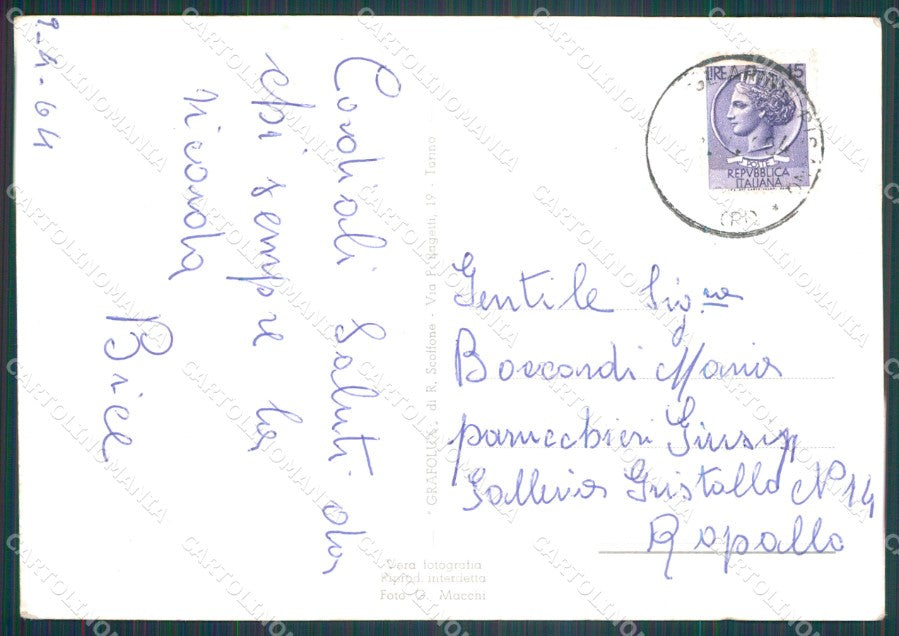 9-4-64
Cordiali saluti da
chi sempre la
ricorda
Brice
GRAFOLUX, di R. Scalfone - Via Passagetti, 19 - Torino
Vera fotografia
Riprod. interdetta
Foto G. Macchi
LIRE 15
POSTE
REPVBBLICA
ITALIANA
Gentile Sig.na
Boccardi Maria
parucchieri Giusepp
Galleria Cristallo N° 14
Rapallo
CARTOLINOMANIA